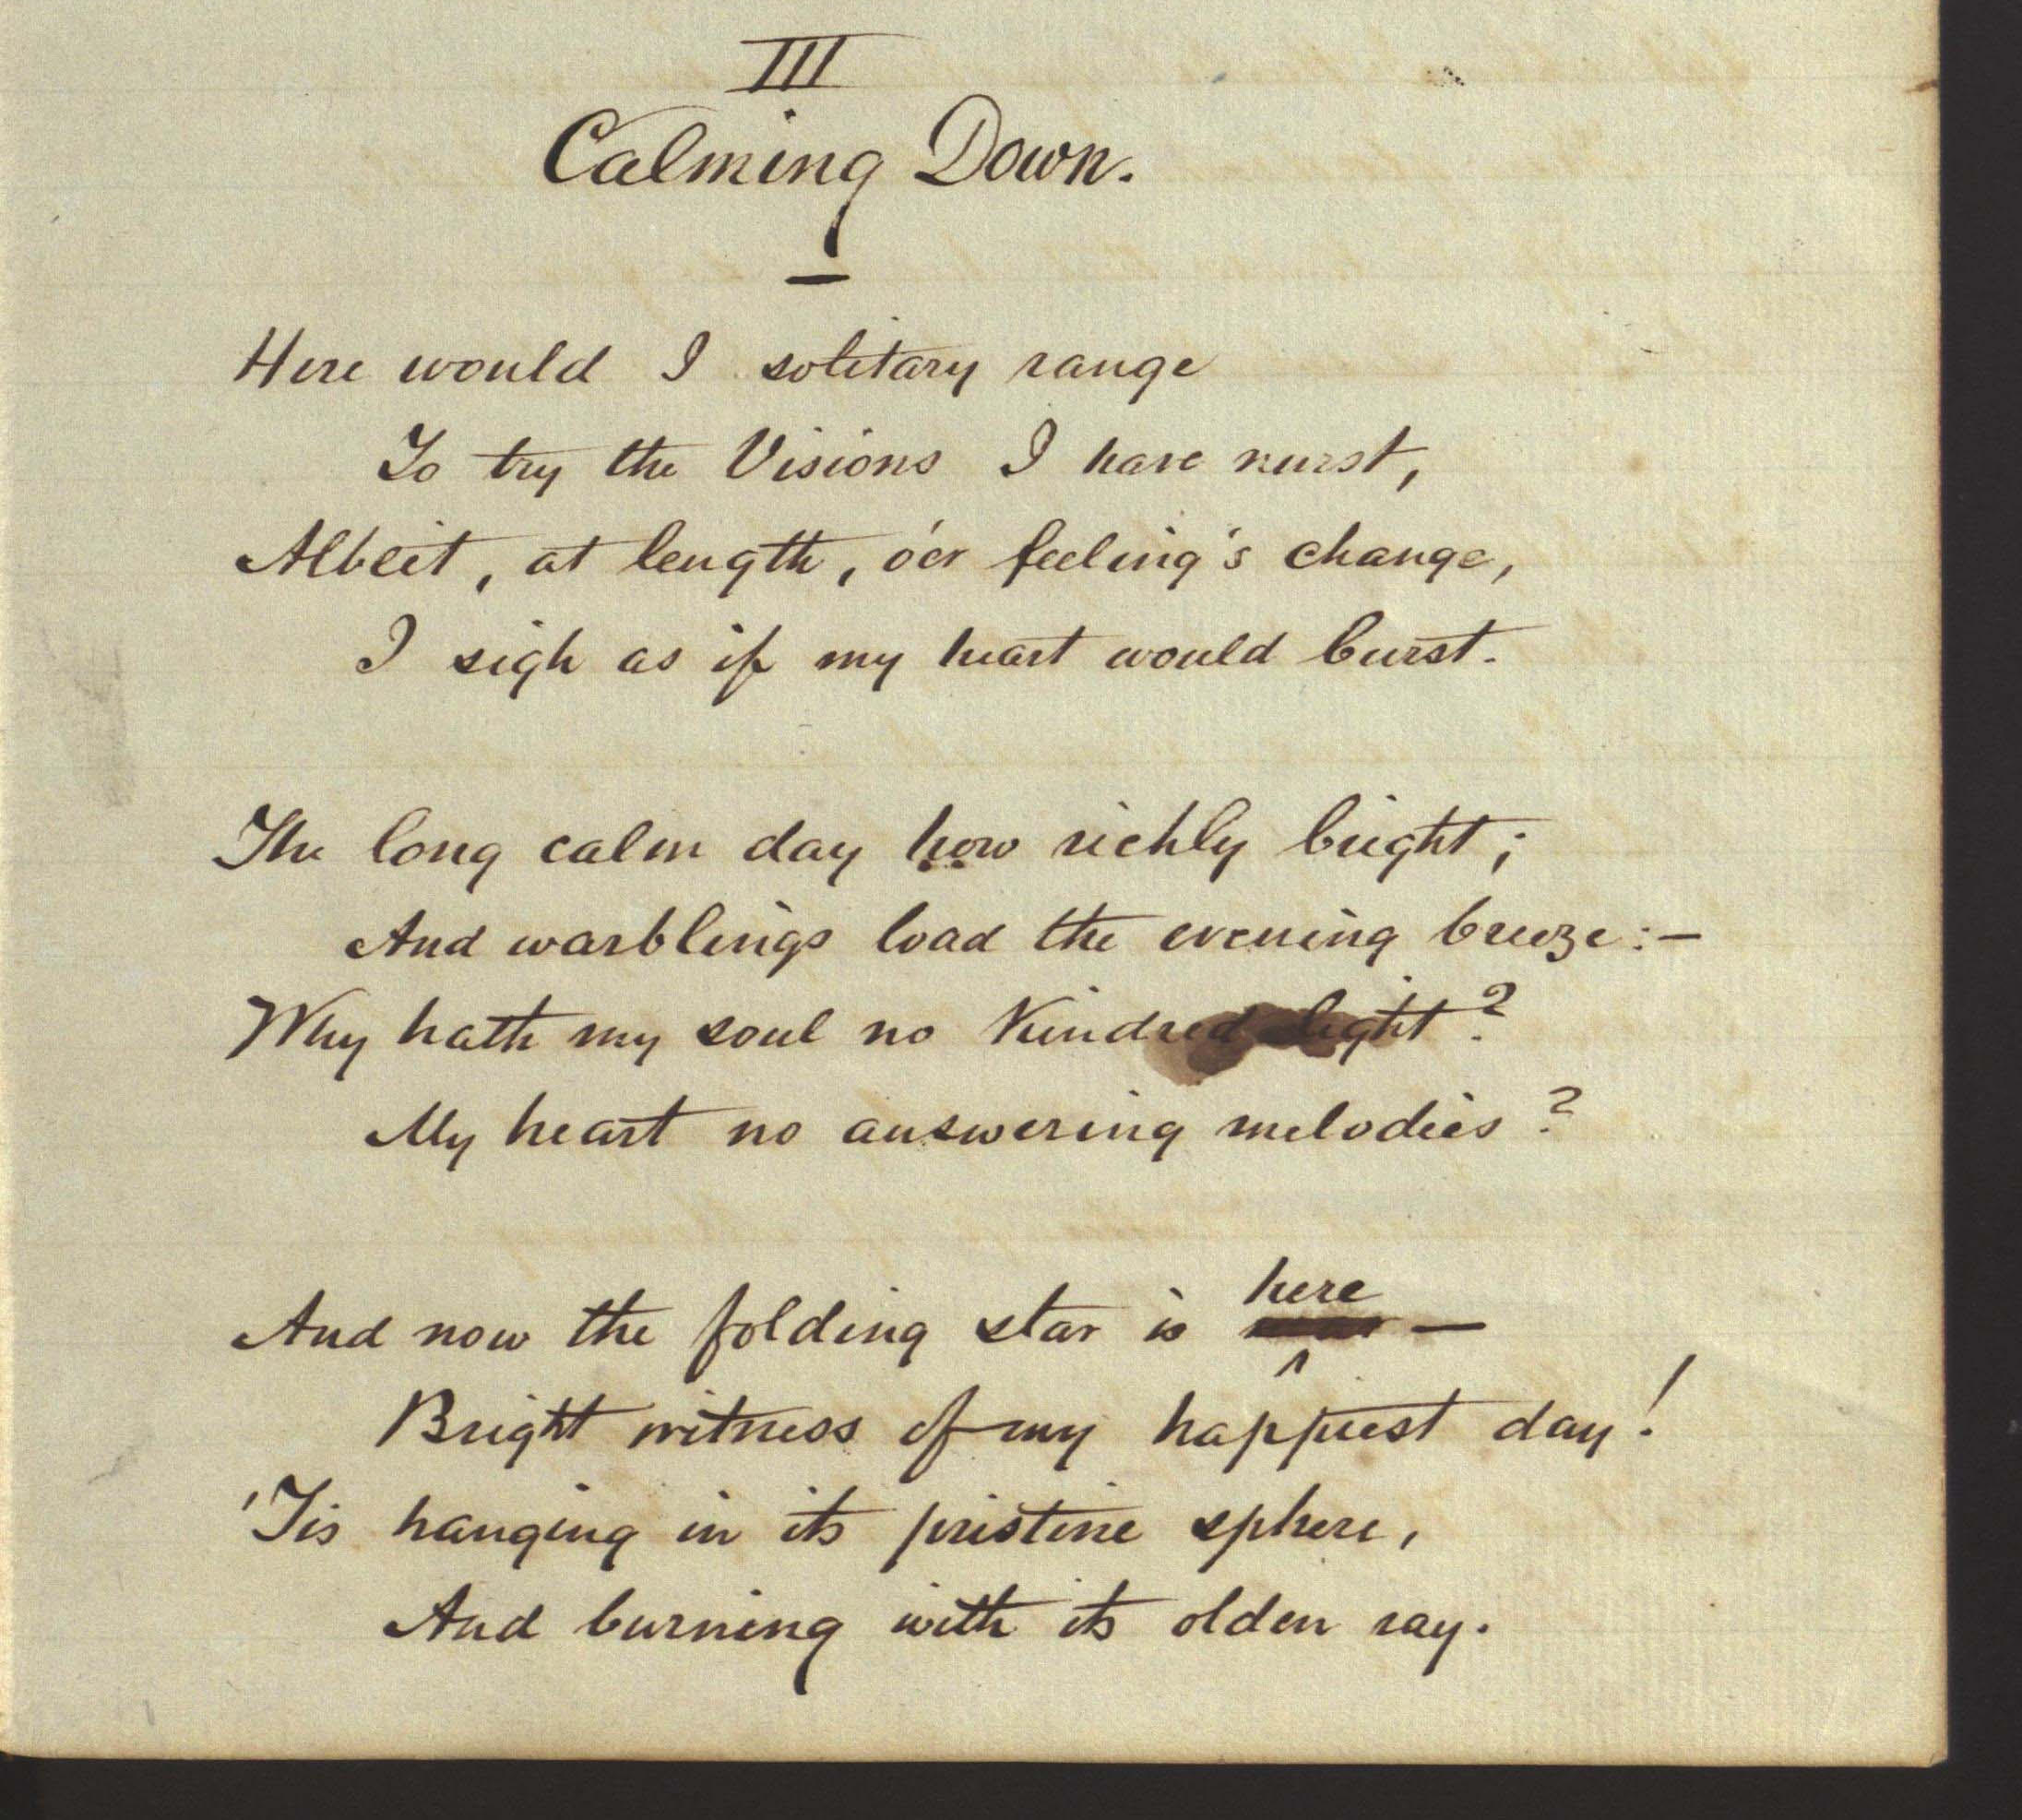 III
Calming Down.
Here would I solitary range
To try the Visions I have nurst,
Albeit, at length, o'er feeling's change,
I sigh as if my heart would burst.
The long calm day how richly bright;
And warblings load the evening breeze:—
Why hath my soul no kindred light?
My heart no answering melodies?
And now the folding star is here —
Bright witness of my happiest day!
'Tis hanging in its pristine sphere,
And burning with its olden ray.